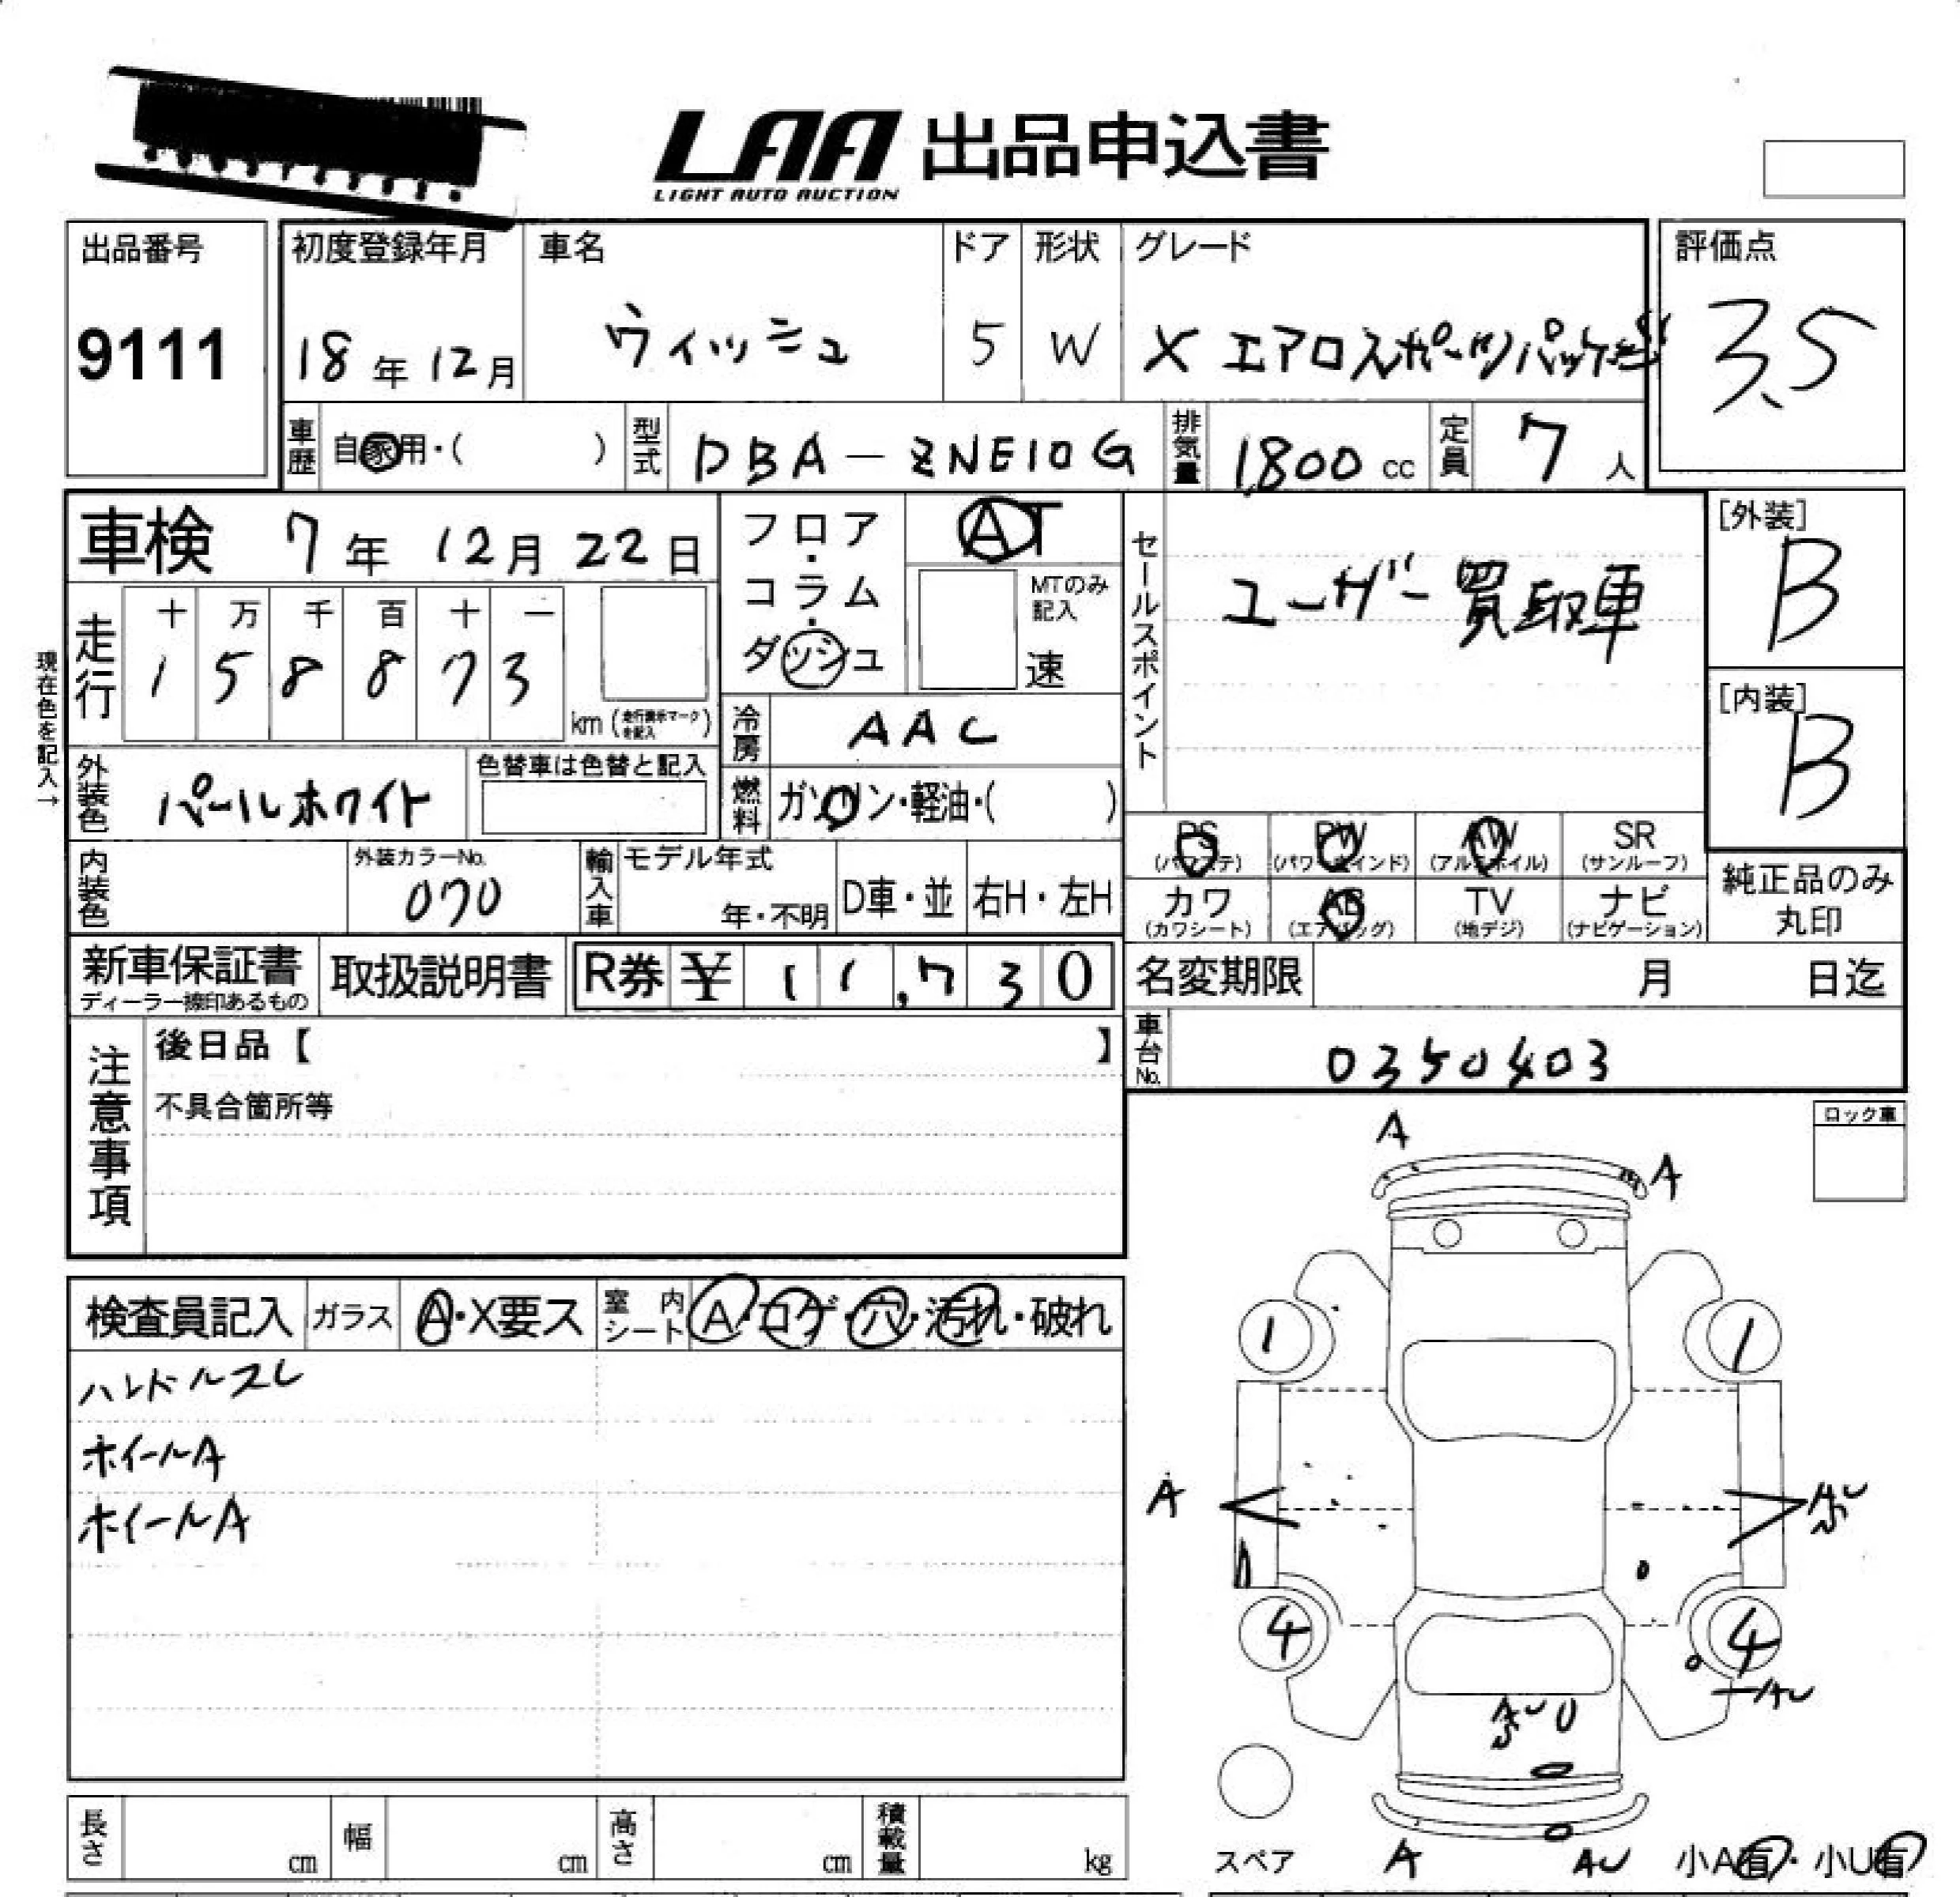 LAA 出品申込書
LIGHT AUTO AUCTION
出品番号
9111
初度登録年月
18年12月
車名
ウィッシュ
ドア
5
形状
W
グレード
X エアロスポーツパッケージ
評価点
3.5
車歴
自家用・( )
型式
DBA-ZNE10G
排気量
1,800cc
定員
7人
車検 7年12月22日
フロア・コラム・ダッシュ
AT
MTのみ記入
速
セールスポイント
ユーザー買取車
[外装]
B
[内装]
B
現在色を記入→
走行
十 万 千 百 十 一
1 5 8 8 7 3
km (走行表示マークを記入)
冷房
AAC
外装色
パールホワイト
色替車は色替と記入
燃料
ガソリン・軽油・( )
PS (パワステ)
PW (パワーウインド)
AW (アルミホイル)
SR (サンルーフ)
カワ (カワシート)
AB (エアバッグ)
TV (地デジ)
ナビ (ナビゲーション)
純正品のみ
丸印
内装色
外装カラーNo.
070
輸入車
モデル年式
年・不明
D車・並
右H・左H
新車保証書
ディーラー捺印あるもの
取扱説明書
R券 ¥ 11,730
名変期限 月 日迄
注意事項
後日品【 】
不具合箇所等
車台No.
0350403
ロック車
検査員記入
ガラス
A・X要ス
室内シート
A・コゲ・穴・汚れ・破れ
ハンドルスレ
ホイールA
ホイールA
A
A
1
1
A
4
4
AU
U
スペア
A
AU
小A有・小U有
長さ cm
幅 cm
高さ cm
積載量 kg